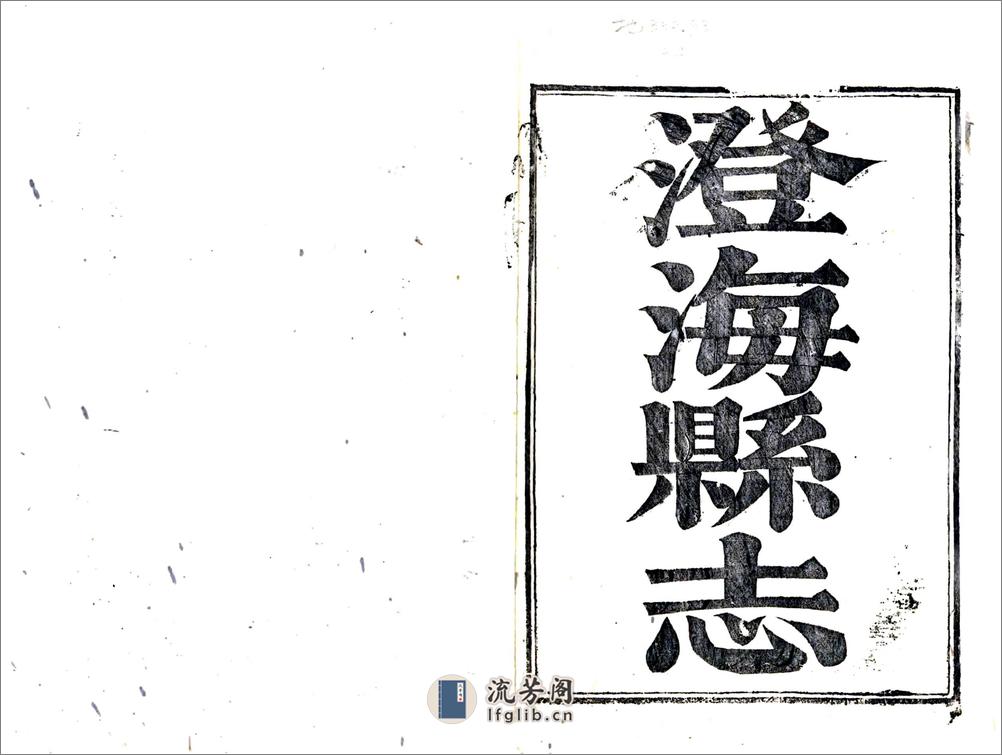 澄海縣志
流芳阁
lfglib.cn